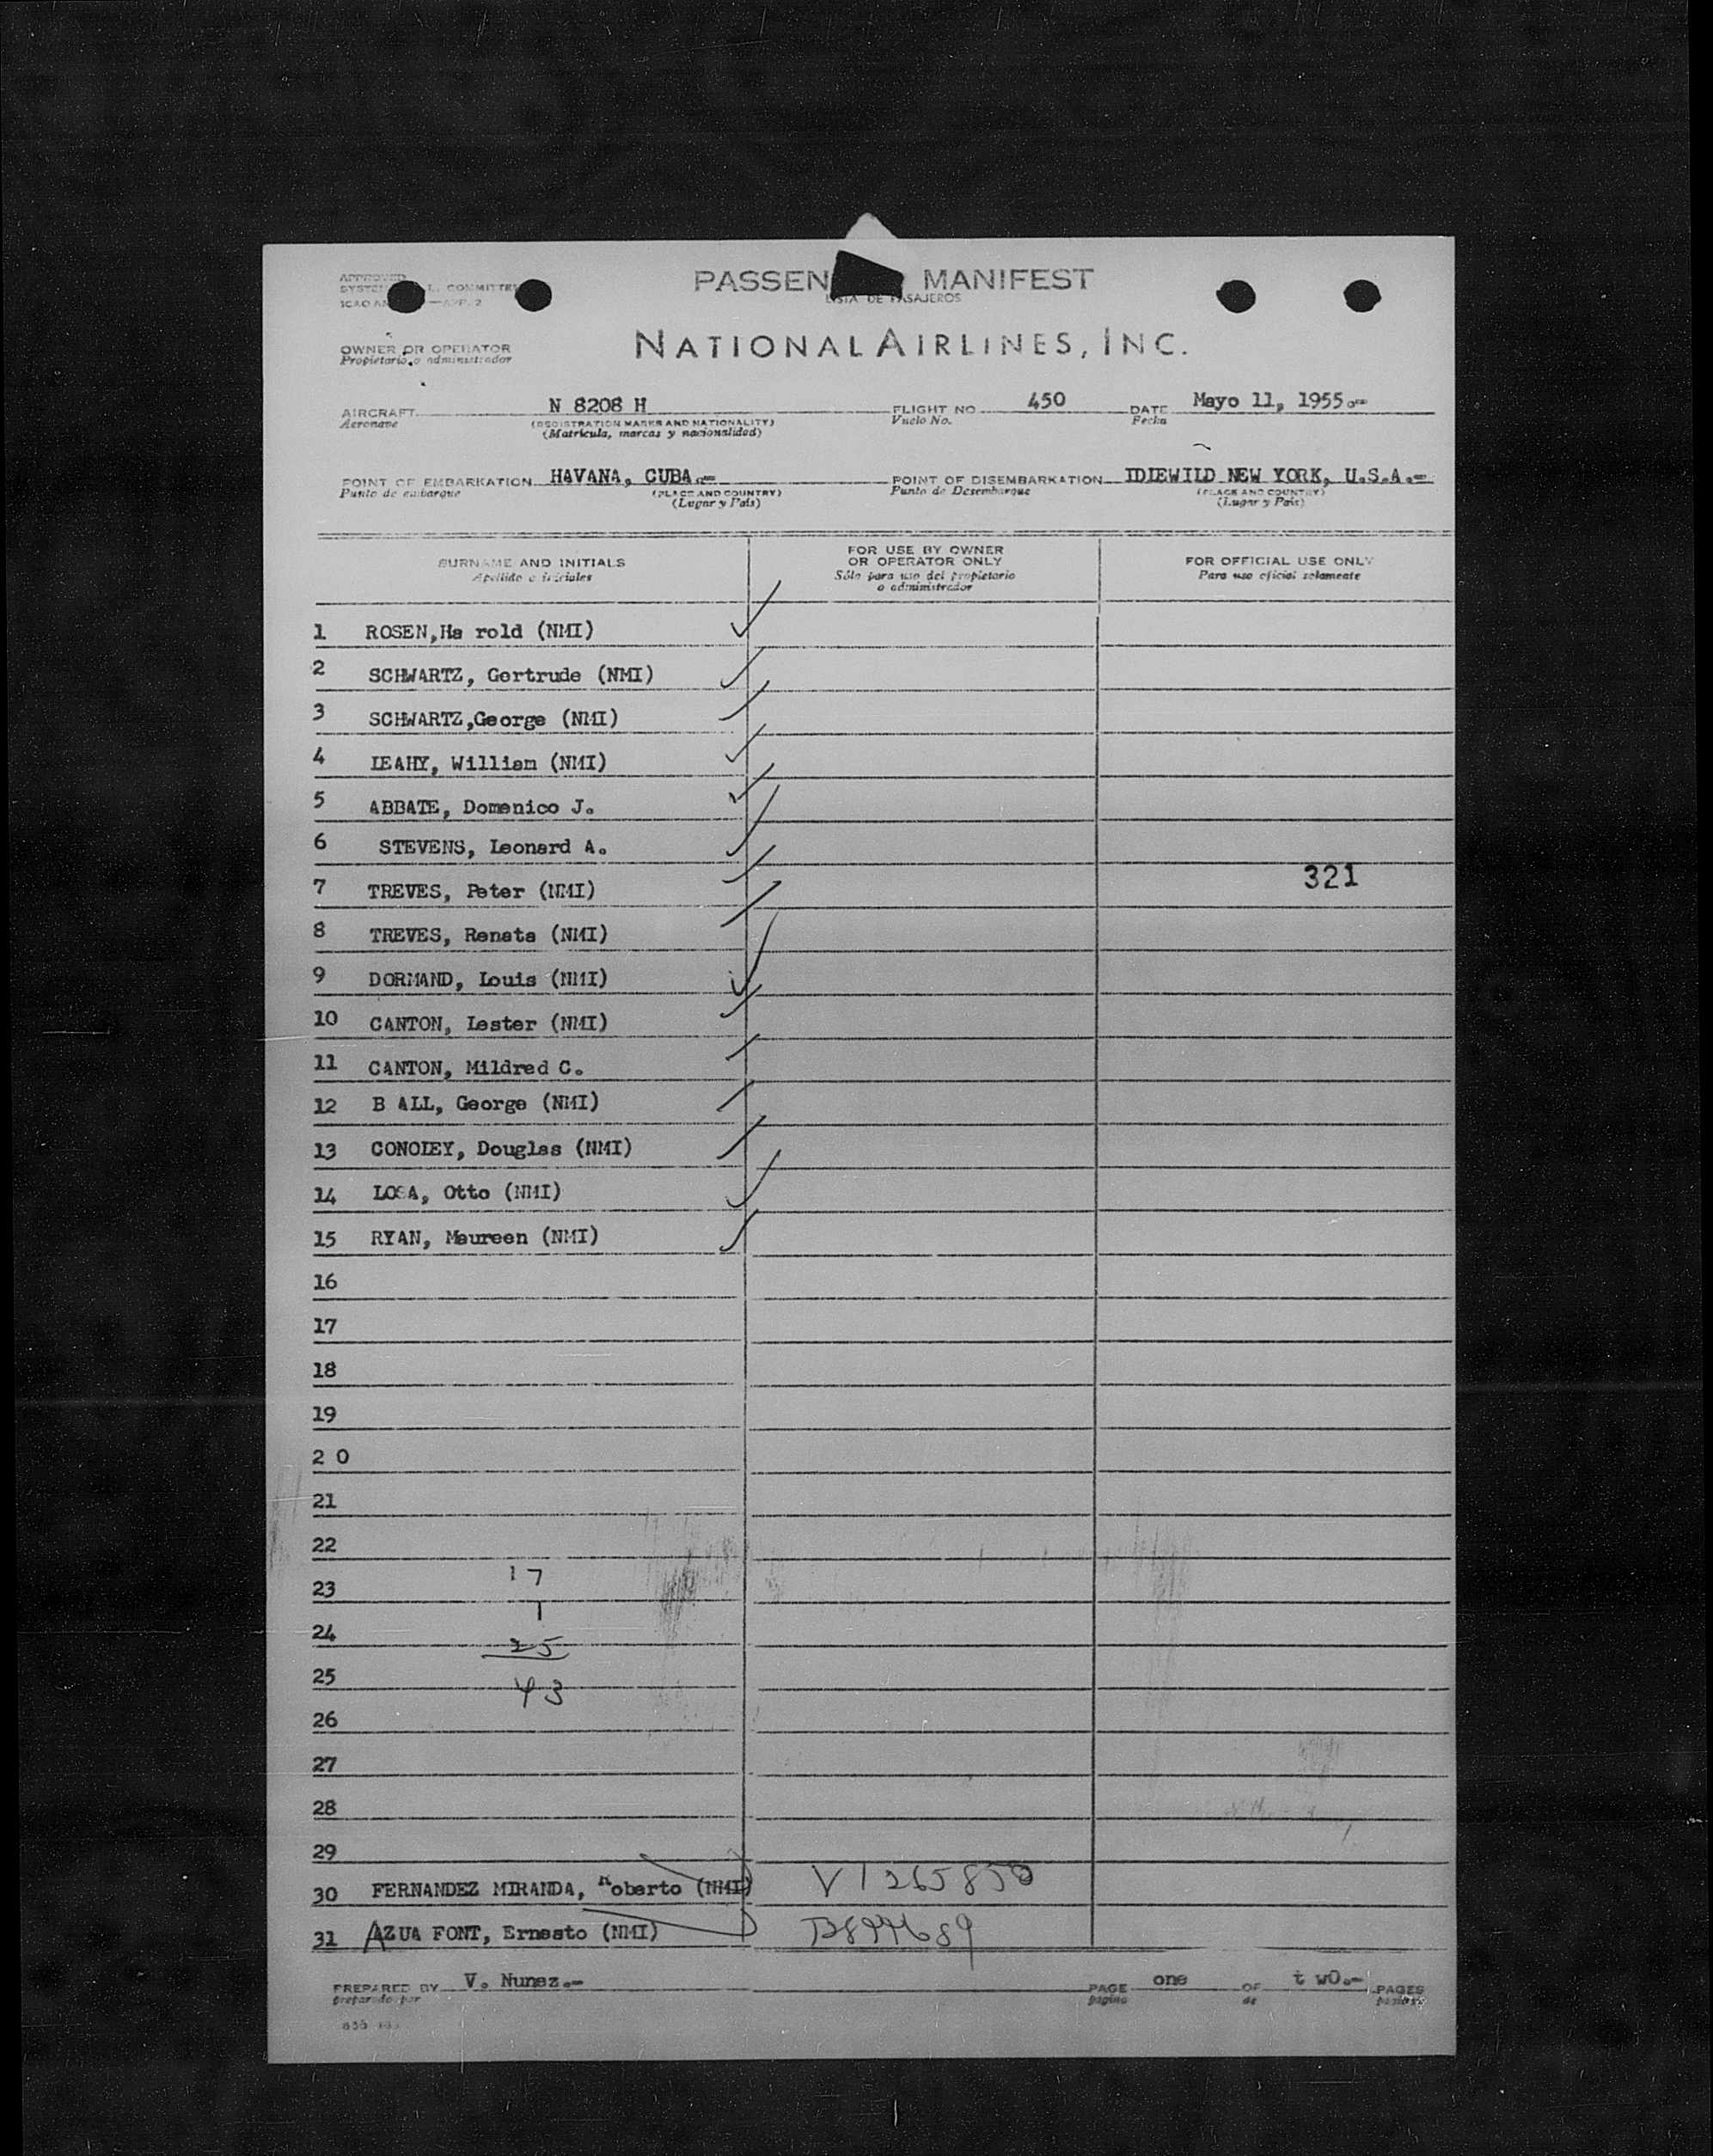 APPROVED
PASSEN MANIFEST
COMMITTEE
LISTA DE PASAJEROS
OWNER OR OPERATOR
Propietario o administrador
NATIONAL AIRLINES, INC.
AIRCRAFT N 8208 H FLIGHT NO 450 DATE Mayo 11, 1955.-
Aeronave (REGISTRATION MARKS AND NATIONALITY) Vuelo No. Fecha
(Matrícula, marcas y nacionalidad)
POINT OF EMBARKATION HAVANA, CUBA.- POINT OF DISEMBARKATION IDIEWILD NEW YORK, U.S.A.-
Punto de embarque (PLACE AND COUNTRY) Punto de Desembarque (PLACE AND COUNTRY)
(Lugar y País) (Lugar y País)
SURNAME AND INITIALS FOR USE BY OWNER OR OPERATOR ONLY FOR OFFICIAL USE ONLY
Apellido e iniciales Sólo para uso del propietario o administrador Para uso oficial solamente
1 ROSEN,Ha rold (NMI)
2 SCHWARTZ, Gertrude (NMI)
3 SCHWARTZ,George (NMI)
4 IEAHY, William (NMI)
5 ABBATE, Domenico J.
6 STEVENS, Leonard A.
321
7 TREVES, Peter (NMI)
8 TREVES, Renata (NMI)
9 DORMAND, Louis (NMI)
10 CANTON, Lester (NMI)
11 CANTON, Mildred C.
12 B ALL, George (NMI)
13 CONOIEY, Douglas (NMI)
14 LOSA, Otto (NMI)
15 RYAN, Maureen (NMI)
16
17
18
19
2 0
21
22
17
23
1
24
25
25
43
26
27
28
29
30 FERNANDEZ MIRANDA, Roberto (NMI) V1265850
31 AZUA FONT, Ernesto (NMI)
PREPARED BY V. Nunez.- PAGE one OF t wO.- PAGES
preparado por página de páginas